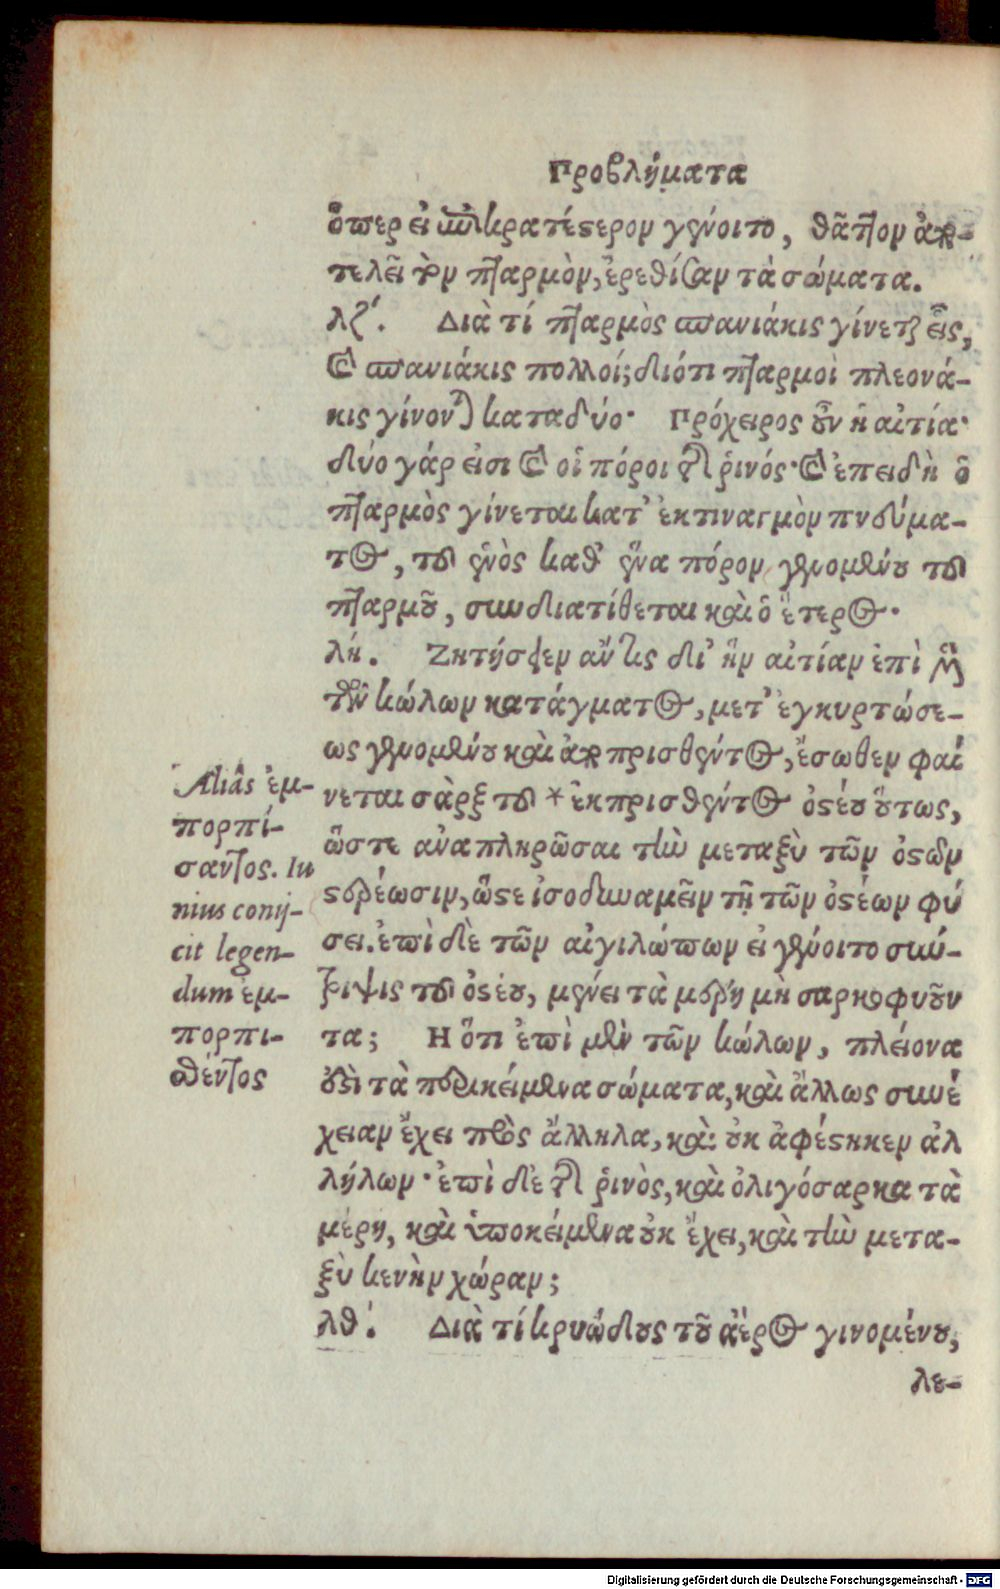 Προβλήματα
ὅπερ εἰ ἐπικρατέστερον γένοιτο, θᾶττον ἀπο-
τελεῖ τὸν πταρμὸν, ἐρεθίσαν τὰ σώματα.
λζ΄. Διὰ τί πταρμὸς σπανιάκις γίνεται εἷς,
καὶ σπανιάκις πολλοί; διότι πταρμοὶ πλεονά-
κις γίνονται κατα δύο· Πρόχειρος οὖν ἡ αἰτία·
δύο γάρ εἰσι καὶ οἱ πόροι τῆς ῥινός· καὶ ἐπειδὴ ὁ
πταρμὸς γίνεται κατ' ἐκτιναγμὸν πνεύμα-
τος, τοῦ ἑνὸς καθ' ἕνα πόρον γενομένου τοῦ
πταρμοῦ, συνδιατίθεται καὶ ὁ ἕτερος.
λή. Ζητήσειεν ἄν τις δι' ἣν αἰτίαν ἐπὶ μὲν
τῶν κώλων κατάγματος, μετ' ἐγκυρτώσε-
ως γενομένου καὶ ἀποπρισθέντος, ἔσωθεν φαί
νεται σὰρξ τοῦ * ἐκπρισθέντος ὀστέου οὕτως,
ὥστε ἀναπληρῶσαι τὴν μεταξὺ τῶν ὀστῶν
στερέωσιν, ὥστε ἰσοδυναμεῖν τῇ τῶν ὀστέων φύ
σει. ἐπὶ δὲ τῶν αἰγιλώπων εἰ γένοιτο σύν-
τριψις τοῦ ὀστέου, μένει τὰ μέρη μὴ σαρκοφυοῦν
τα; Η ὅτι ἐπὶ μὲν τῶν κώλων, πλείονα
ἐστὶ τὰ περικείμενα σώματα, καὶ ἄλλως συνέ
χειαν ἔχει πρὸς ἄλληλα, καὶ οὐκ ἀφέστηκεν ἀλ
λήλων· ἐπὶ δὲ τῆς ῥινὸς, καὶ ὀλιγόσαρκα τὰ
μέρη, καὶ ὑποκείμενα οὐκ ἔχει, καὶ τὴν μετα-
ξὺ κενὴν χώραν;
λθ΄. Διὰ τί κρυώδους τοῦ ἀέρος γινομένου,
λε-
Aliâs ἐμ-
πορπί-
σαντος. Iu
nius conij-
cit legen-
dum ἐμ-
πορπι-
σθέντος
Digitalisierung gefördert durch die Deutsche Forschungsgemeinschaft - DFG